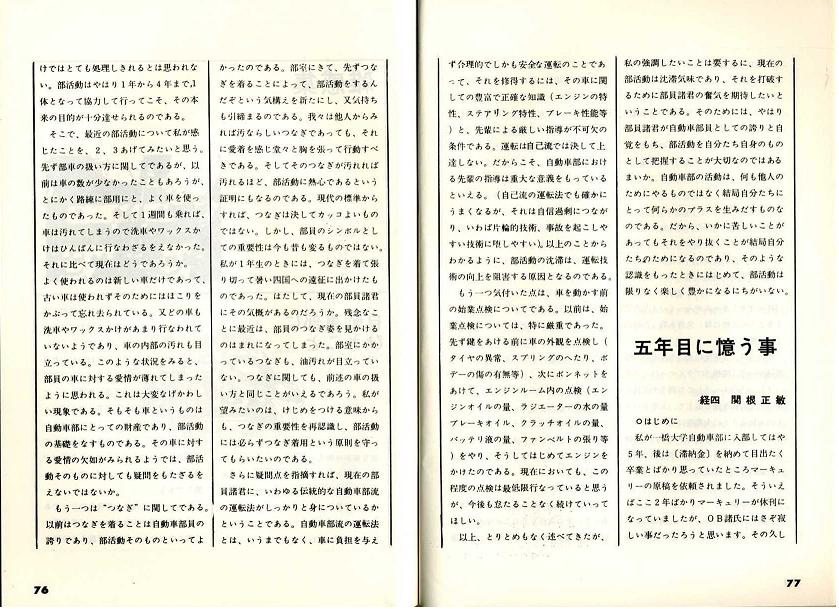 けではとても処理しきれるとは思われな
い。部活動はやはり1年から4年まで,1
体となって協力して行ってこそ、その本
来の目的が十分達せられるのである。
そこで、最近の部活動について私が感
じたことを、2、3あげてみたいと思う。
先ず部車の扱い方に関してであるが、以
前は車の数が少なかったこともあろうが、
とにかく路練に部用にと、よく車を使っ
たものであった。そして1週間も乗れば、
車は汚れてしまうので洗車やワックスか
けはひんぱんに行なわざるをえなかった。
それに比べて現在はどうであろうか。
よく使われるのは新しい車だけであって、
古い車は使われずそのためにはほこりを
かぶって忘れ去られている。又どの車も
洗車やワックスかけがあまり行なわれて
いないようであり、車の内部の汚れも目
立っている。このような状況をみると、
部員の車に対する愛情が薄れてしまった
ように思われる。これは大変なげかわし
い現象である。そもそも車というものは
自動車部にとっての財産であり、部活動
の基礎をなすものである。その車に対す
る愛情の欠如がみられるようでは、部活
動そのものに対しても疑問をもたざるを
えないではないか。
もう一つは“つなぎ”に関してである。
以前はつなぎを着ることは自動車部員の
誇りであり、部活動そのものといってよ
かったのである。部室にきて、先ずつな
ぎを着ることによって、部活動をするん
だぞという気構えを新たにし、又気持ち
も引締まるのである。我々は他人からみ
れば汚ならしいつなぎであっても、それ
に愛着を感じ堂々と胸を張って行動すべ
きである。そしてそのつなぎが汚れれば
汚れるほど、部活動に熱心であるという
証明にもなるのである。現代の標準から
すれば、つなぎは決してカッコよいもの
ではない。しかし、部員のシンボルとし
ての重要性は今も昔も変るものではない。
私が1年生のときには、つなぎを着て張
り切って暑い四国への遠征に出かけたも
のであった。はたして、現在の部員諸君
にその気概があるのだろうか。残念なこ
とに最近は、部員のつなぎ姿を見かける
のはまれになってしまった。部室にかか
っているつなぎも、油汚れが目立ってい
ない。つなぎに関しても、前述の車の扱
い方と同じことがいえるであろう。私が
望みたいのは、けじめをつける意味から
も、つなぎの重要性を再認識し、部活動
には必らずつなぎ着用という原則を守っ
てもらいたいのである。
さらに疑問点を指摘すれば、現在の部
員諸君に、いわゆる伝統的な自動車部流
の運転法がしっかりと身についているか
ということである。自動車部流の運転法
とは、いうまでもなく、車に負担を与え
76
ず合理的でしかも安全な運転のことであ
って、それを修得するには、その車に関
しての豊富で正確な知識(エンジンの特
性、ステアリング特性、ブレーキ性能等
)と、先輩による厳しい指導が不可欠の
条件である。運転は自己流では決して上
達しない。だからこそ、自動車部におけ
る先輩の指導は重大な意義をもっている
といえる。(自己流の運転法でも確かに
うまくなるが、それは自信過剰につなが
り、いわば片輪的技術、事故を起こしや
すい技術に堕しやすい)。以上のことから
わかるように、部活動の沈滞は、運転技
術の向上を阻害する原因となるのである。
もう一つ気付いた点は、車を動かす前
の始業点検についてである。以前は、始
業点検については、特に厳重であった。
先ず鍵をあける前に車の外観を点検し(
タイヤの異常、スプリングのへたり、ボ
デーの傷の有無等)、次にボンネットを
あけて、エンジンルーム内の点検(エン
ジンオイルの量、ラジエーターの水の量
ブレーキオイル、クラッチオイルの量、
バッテリ液の量、ファンベルトの張り等
)をやり、そうしてはじめてエンジンを
かけたのである。現在においても、この
程度の点検は最低限行なっていると思う
が、今後も怠たることなく続けていって
ほしい。
以上、とりとめもなく述べてきたが、
私の強調したいことは要するに、現在の
部活動は沈滞気味であり、それを打破す
るために部員諸君の奮気を期待したいと
いうことである。そのためには、やはり
部員諸君が自動車部員としての誇りと自
覚をもち、部活動を自分たち自身のもの
として把握することが大切なのではある
まいか。自動車部の活動は、何も他人の
ためにやるものではなく結局自分たちに
とって何らかのプラスを生みだすものな
のである。だから、いかに苦しいことが
あってもそれをやり抜くことが結局自分
たちのためになるのであり、そのような
認識をもったときにはじめて、部活動は
限りなく楽しく豊かになるにちがいない。
五年目に憶う事
経四 関根正敏
○はじめに
私が一橋大学自動車部に入部してはや
5年、後は〔滞納金〕を納めて目出たく
卒業とばかり思っていたところマーキュ
リーの原稿を依頼されました。そういえ
ばここ2年ばかりマーキュリーが休刊に
なっていましたが、OB諸氏にはさぞ寂
しい事だったろうと思います。その久し
77